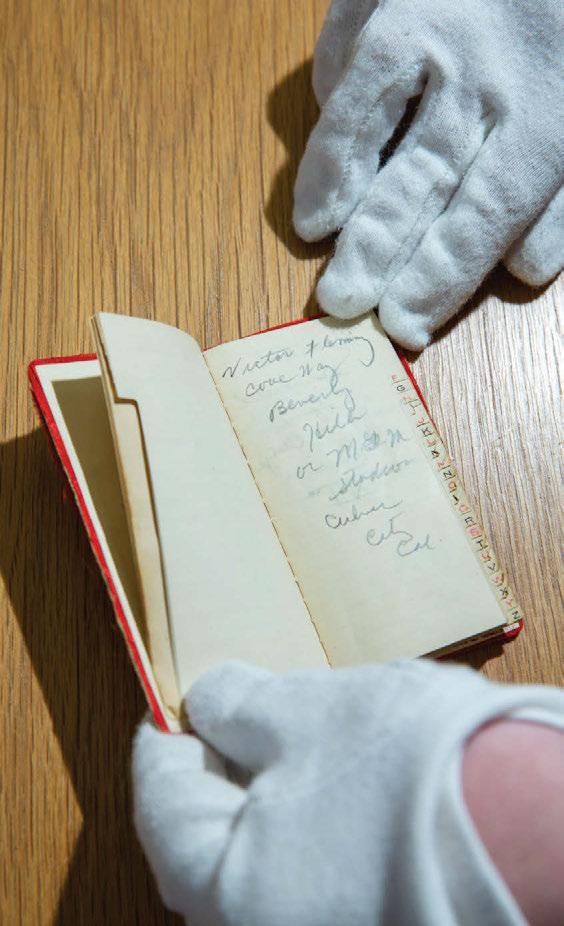 Victor Fleming
Cove Way
Beverly
Hills
or MGM
Studios
Culver
City
Cal.